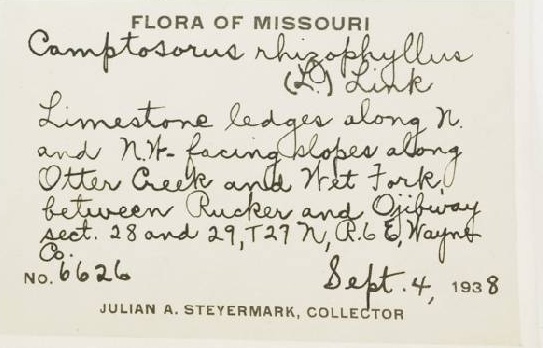 FLORA OF MISSOURI
Camptosorus rhizophyllus
(L.) Link
Limestone ledges along N.
and N.W- facing slopes along
Otter Creek and Wet Fork,
between Rucker and Ojibway
sect. 28 and 29, T27 N, R.6 E, Wayne
Co.
NO. 6626 Sept. 4, 1938
JULIAN A. STEYERMARK, COLLECTOR